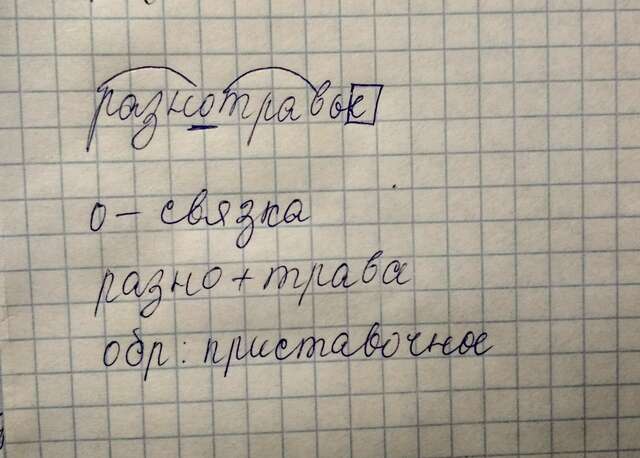 разнотравое
о - связка
разно + трава
обр: приставочное